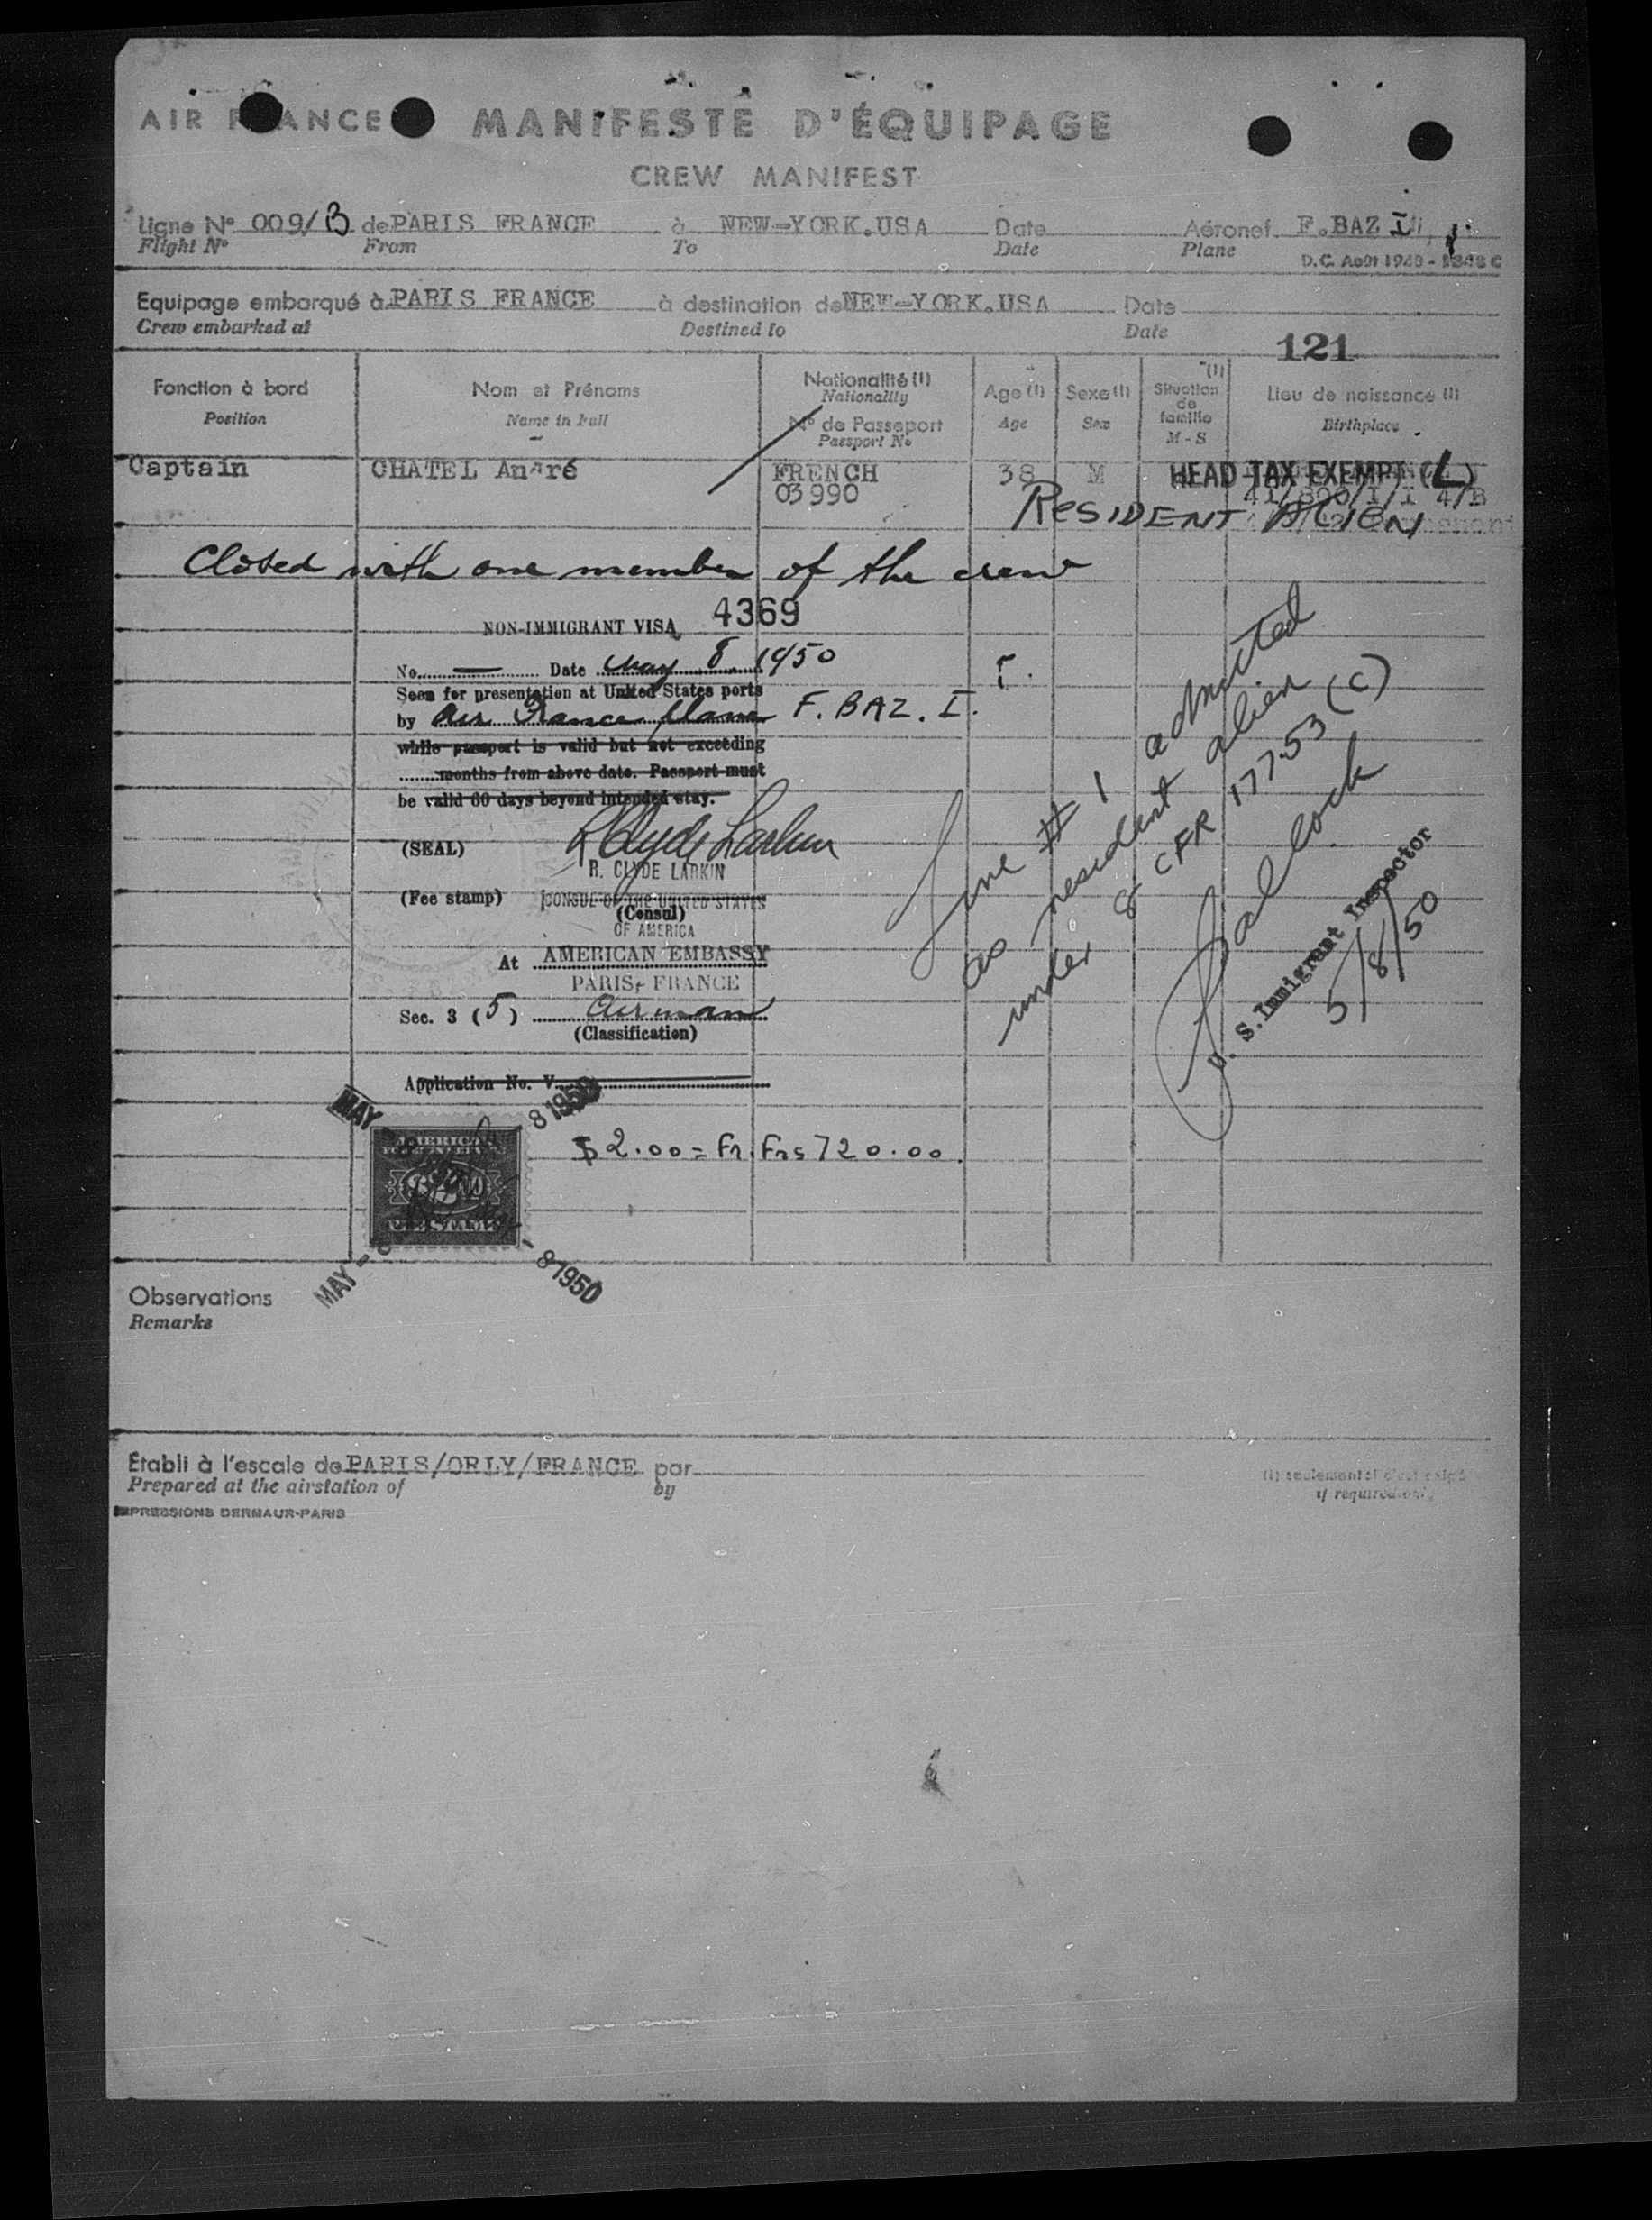 AIR FRANCE MANIFESTE D'ÉQUIPAGE
CREW MANIFEST
Ligne No 009/B de PARIS FRANCE à NEW-YORK.USA Date Aéronef F.BAZ I
Flight No From To Date Plane D.C. Août 1948 -
Equipage embarqué à PARIS FRANCE à destination de NEW-YORK.USA Date
Crew embarked at Destined to Date
121
Fonction à bord Nom et Prénoms Nationalité (1) Age (1) Sexe (1) Situation de famille (1) Lieu de naissance (1)
Position Name in full Nationality Age Sex M - S Birthplace
No de Passeport
Passport No
Captain CHATEL André FRENCH 38 M HEAD TAX EXEMPT (L)
03990
RESIDENT ALIEN
Closed with one member of the crew
NON-IMMIGRANT VISA 4369
No. — Date May 8 1950
Seen for presentation at United States ports
by Air France plane F.BAZ.I.
while passport is valid but not exceeding
months from above date. Passport must
be valid 60 days beyond intended stay.
(SEAL)
R. Clyde Larkin
R. CLYDE LARKIN
(Fee stamp) CONSUL OF THE UNITED STATES
(Consul)
OF AMERICA
At AMERICAN EMBASSY
PARIS, FRANCE
Sec. 3 (5) Airman
(Classification)
Application No. V
Line # 1 admitted
as resident alien
under 8 CFR 177.53 (C)
U. S. Immigrant Inspector
5/8/50
MAY 8 1950
AMERICAN
FEE STAMP
$2.00 = Fr. Frs 720.00.
MAY - 8 1950
Observations
Remarks
Établi à l'escale de PARIS/ORLY/FRANCE par
Prepared at the airstation of by
(1) seulement si c'est exigé
if required only
IMPRESSIONS DERMAUR-PARIS